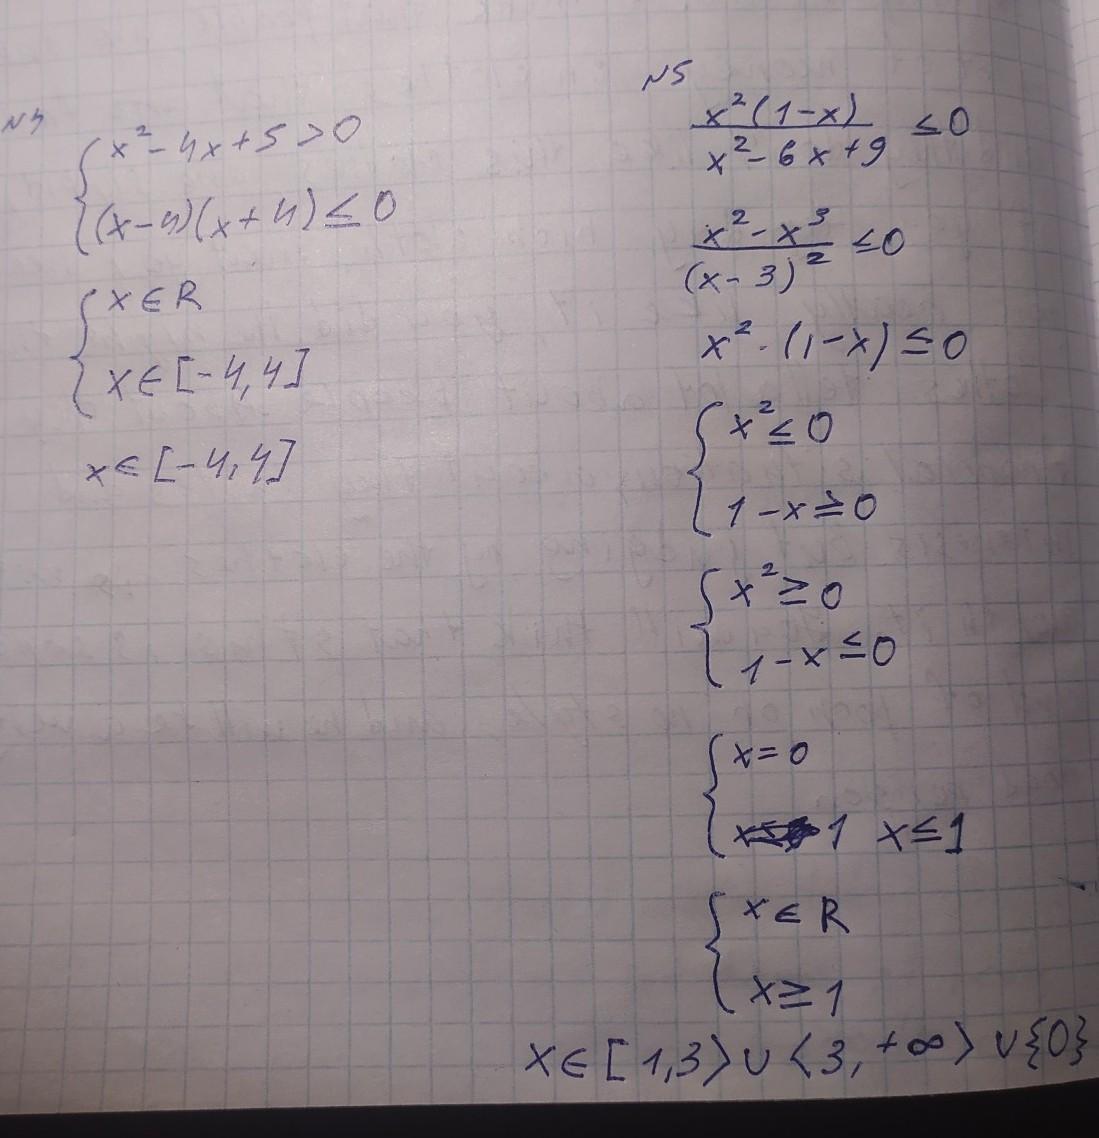 N4
{ x² - 4x + 5 > 0
(x-4)(x+4) ≤ 0
{ x ∈ R
x ∈ [-4,4]
x ∈ [-4,4]
N5
x²(1-x) / x² - 6x + 9 ≤ 0
x² - x³ / (x-3)² ≤ 0
x² · (1-x) ≤ 0
{ x² ≤ 0
1 - x ≥ 0
{ x² ≥ 0
1 - x ≤ 0
{ x = 0
1 x ≤ 1
{ x ∈ R
x ≥ 1
x ∈ [1,3⟩ ∪ ⟨3, +∞⟩ ∪ {0}